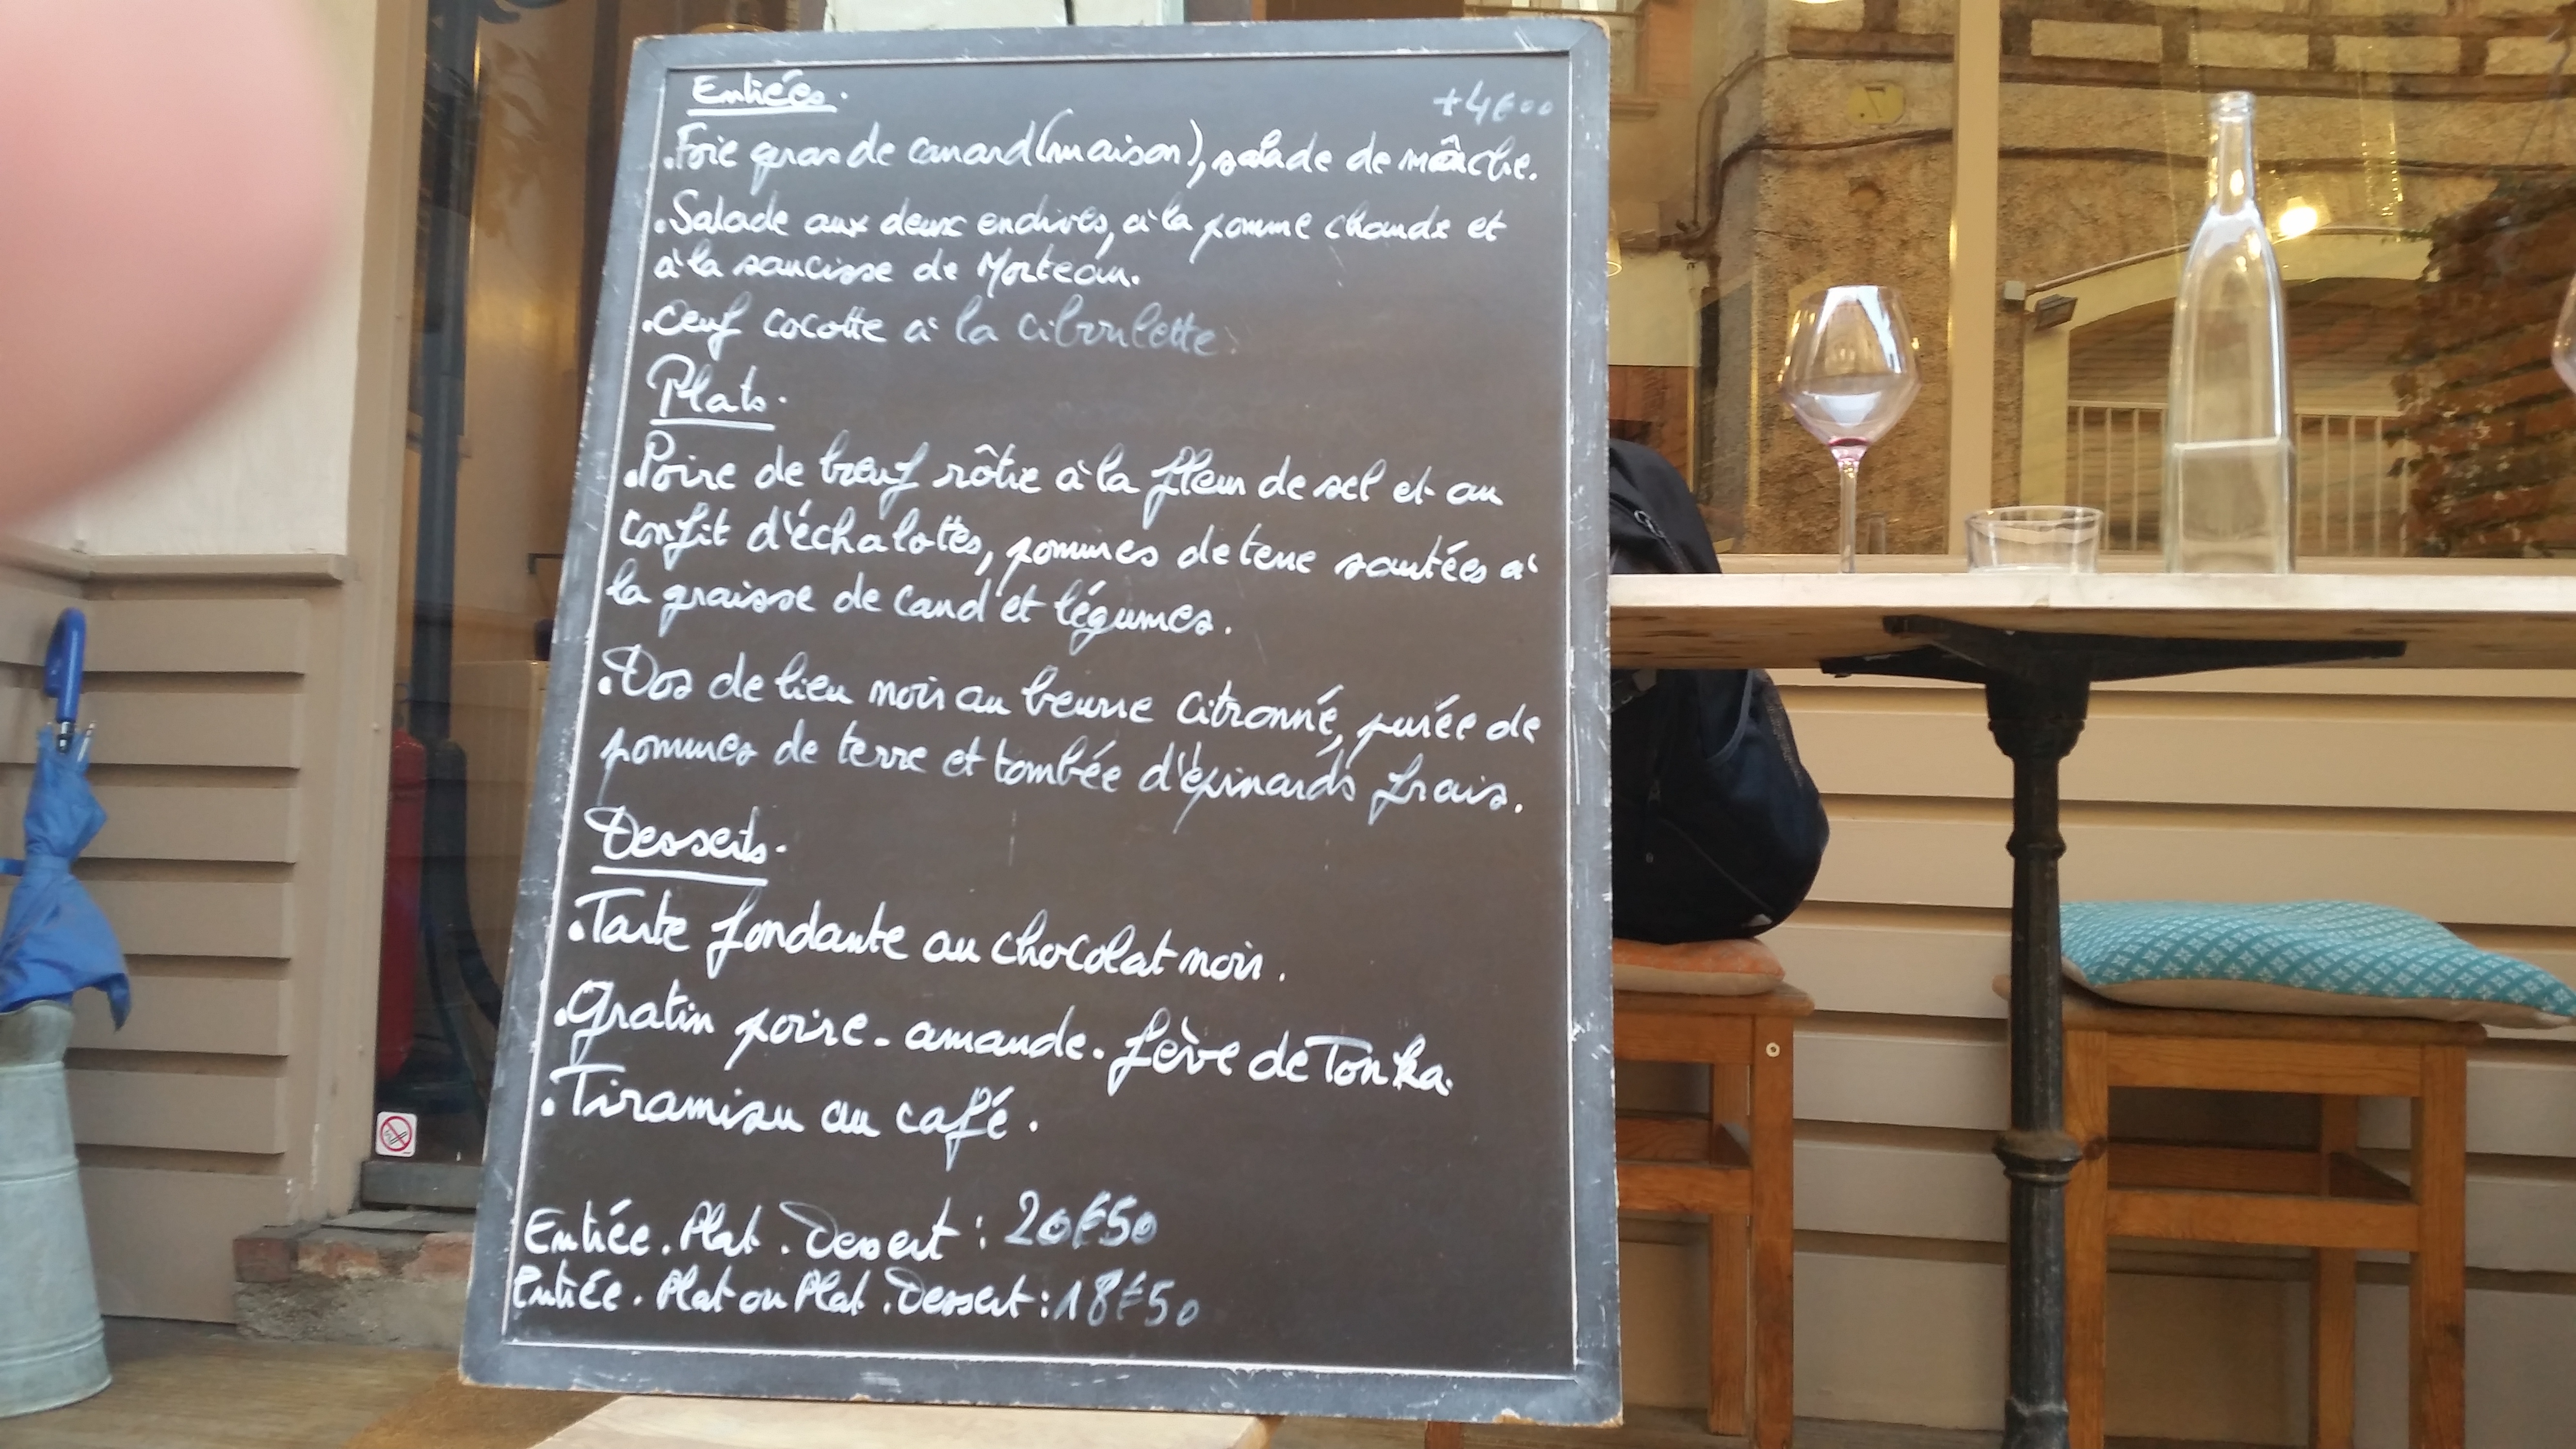 Entrées.
+4€00
.Foie gras de canard (maison), salade de mâche.
.Salade aux deux endives, à la pomme chaude et
à la saucisse de Morteau.
.Oeuf cocotte à la ciboulette.
Plats.
.Poire de bœuf rôtie à la fleur de sel et au
confit d'échalottes, pommes de terre sautées à
la graisse de cand et légumes.
.Dos de lieu noir au beurre citronné, purée de
pommes de terre et tombée d'épinards frais.
Desserts.
.Tarte fondante au chocolat noir.
.Gratin poire - amande - fève de Tonka.
.Tiramisu au café.
Entrée . Plat . Dessert : 20€50
Entrée . Plat ou Plat . Dessert : 18€50